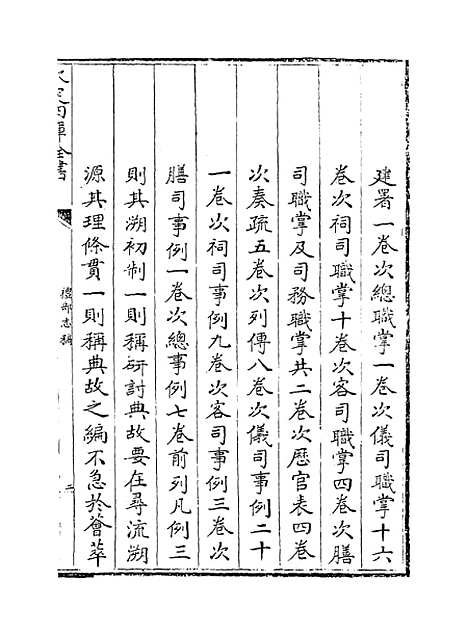 建署一卷次總職掌一卷次儀司職掌十六
卷次祠司職掌十卷次客司職掌四卷次膳
司職掌及司務職掌共二卷次歷官表四卷
次奏疏五卷次列傳八卷次儀司事例二十
一卷次祠司事例九卷次客司事例三卷次
膳司事例一卷次總事例七卷前列凡例三
則其溯初制一則稱研討典故要在尋流溯
源其理條貫一則稱典故之編不急於薈萃
欽定四庫全書
禮部志稿
二